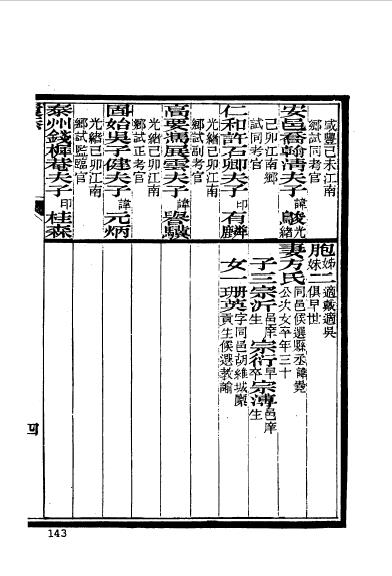 咸豐己未江南
鄉試同考官
安邑喬翰清夫子諱駿光緒
己卯江南鄉
試同考官
仁和許石卿夫子印有麟
光緒己卯江南
鄉試副考官
高要馮展雲夫子諱譽驥
光緒己卯江南
鄉試正考官
固始吳子健夫子諱元炳
光緒己卯江南
鄉試監臨官
泰州錢樨菴夫子印桂森
胞姊妹二適戴適吳俱早世
妻方氏同邑候選縣丞諱覺公次女卒年三十
子三宗沂邑庠生宗衍早卒宗溥邑庠生
女一珊英字同邑胡維城廩貢生候選教諭
四
143